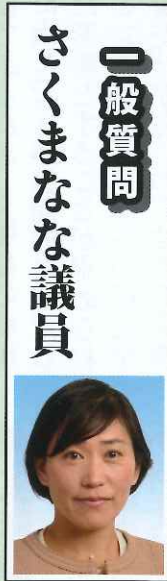 一般質問
さくまなな議員